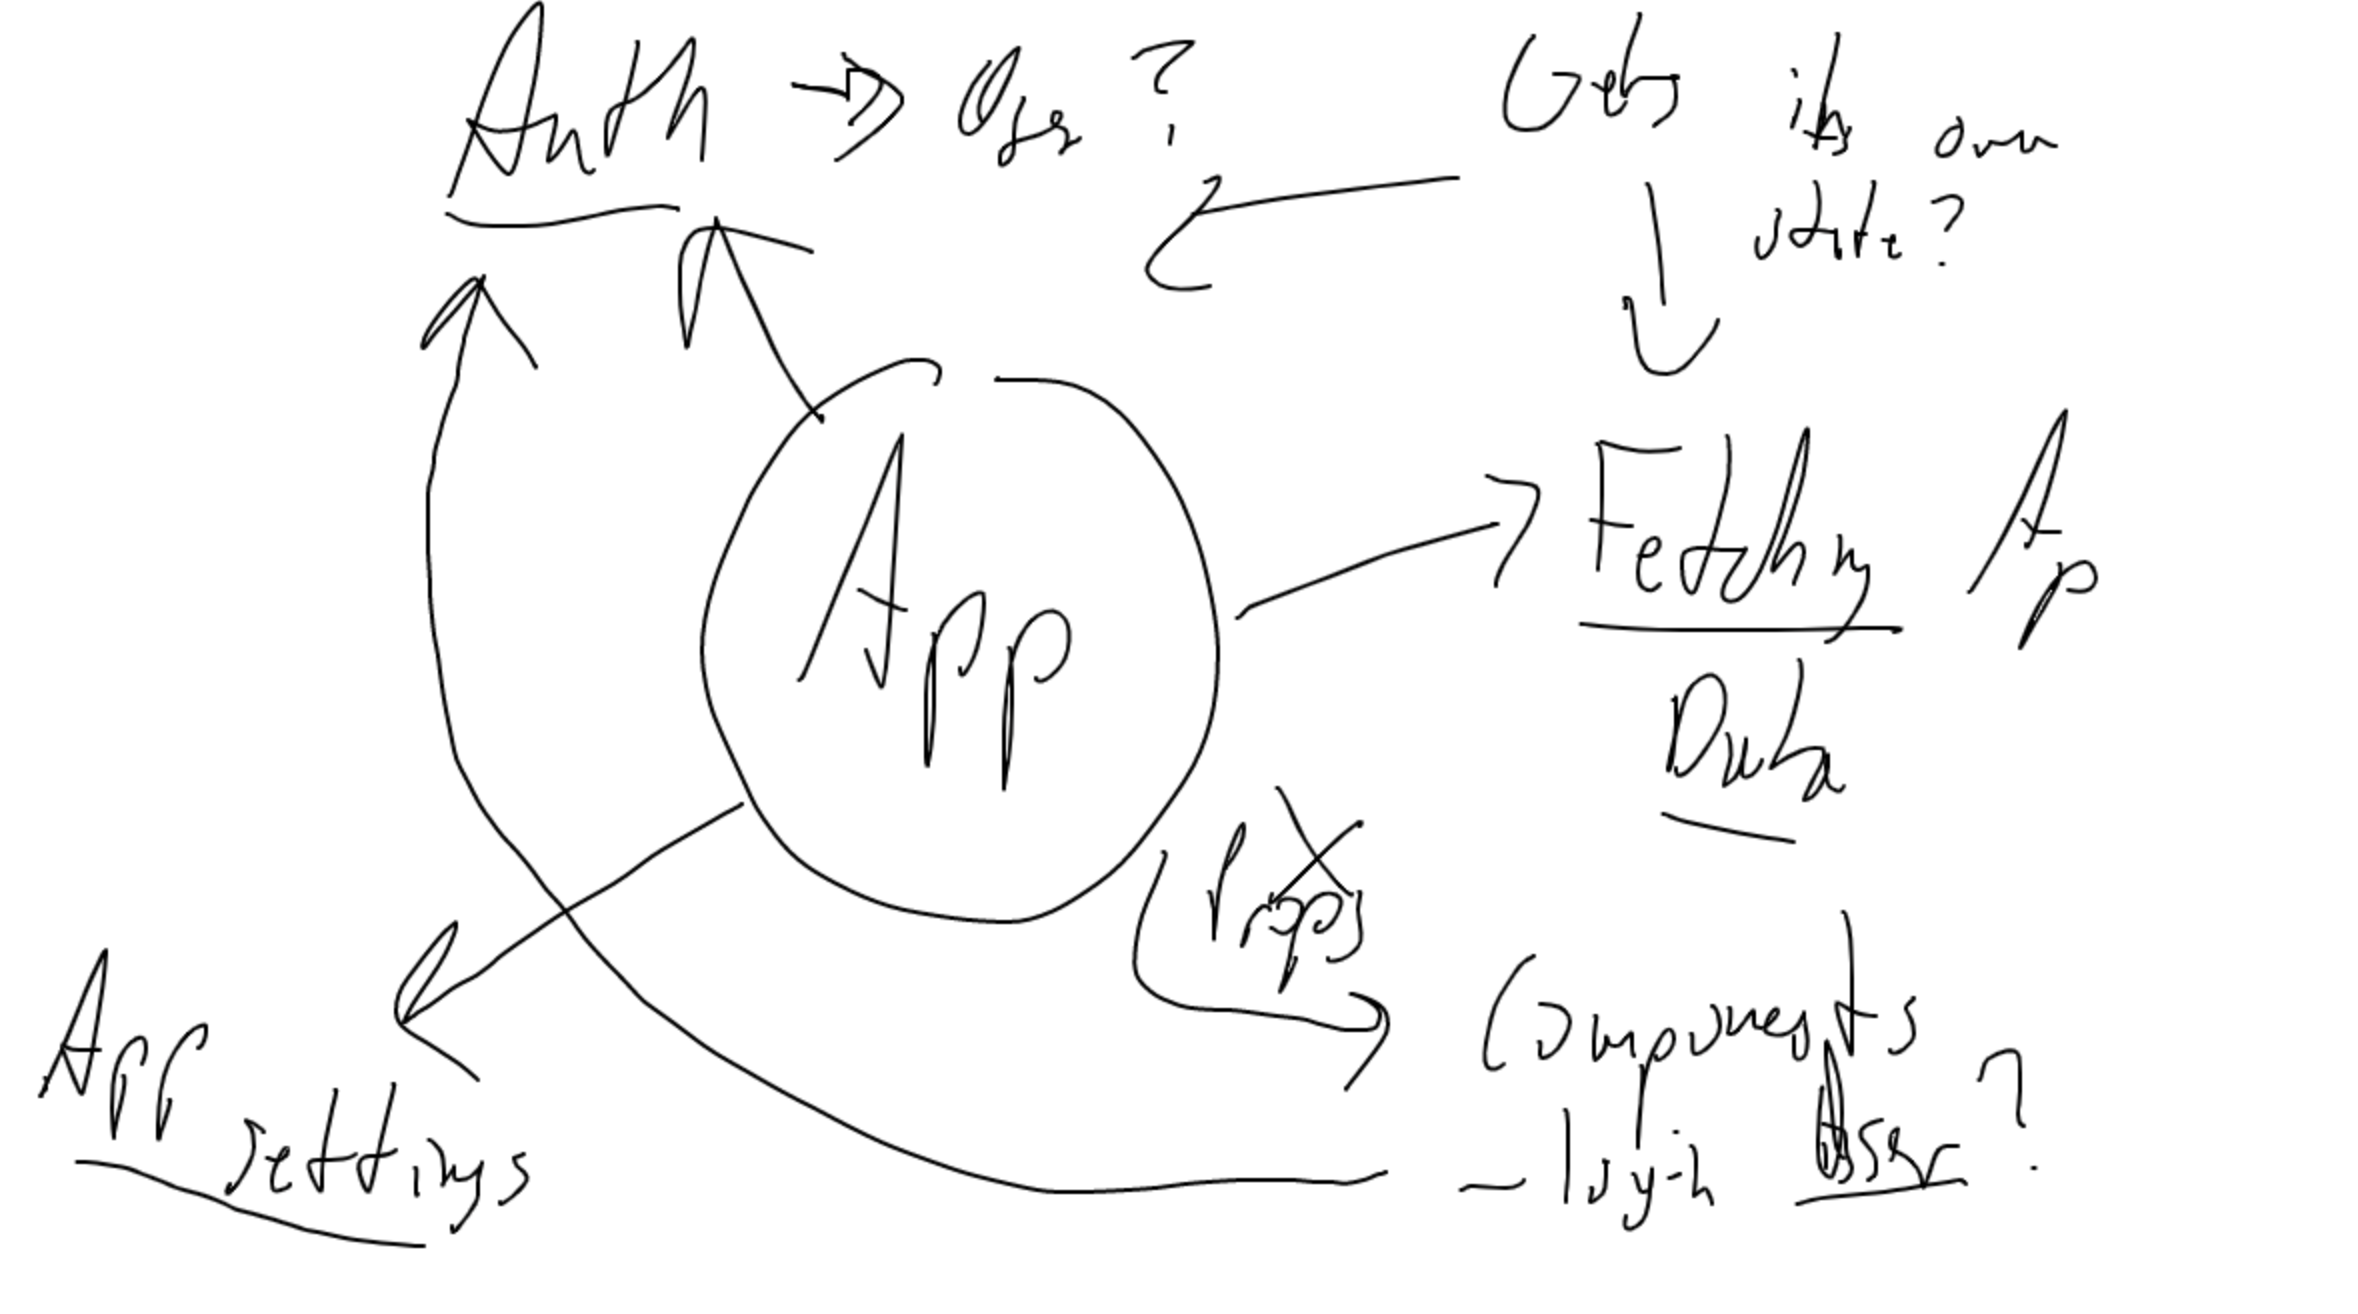 Auth → User ?
Gets its own
state?
App
Fetching Ap
Data
Props
Components
- login User ?
App
settings